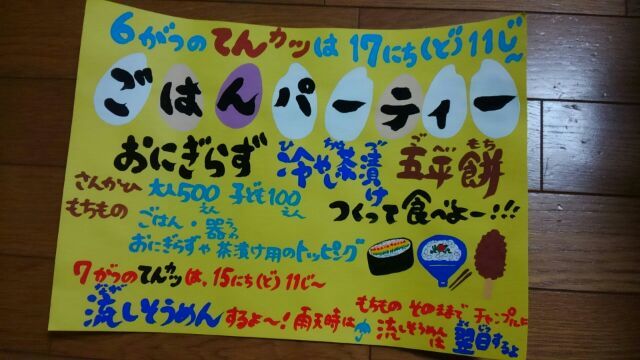 6がつのてんカツは 17にち(ど)11じ~
ごはんパーティー
おにぎらず 冷やし茶漬け 五平餅
ひ ちゃ づ ご へい もち
さんかひ 大人500えん 子ども100えん
つくって食べよー!!!
もちもの ごはん・器
うつわ
おにぎらずや茶漬け用のトッピング
7がつのてんカツは、15にち(ど)11じ~
流しそうめんするよ~!雨天時は
なが
もちもの そのままで
流しそうめんは翌日するよ